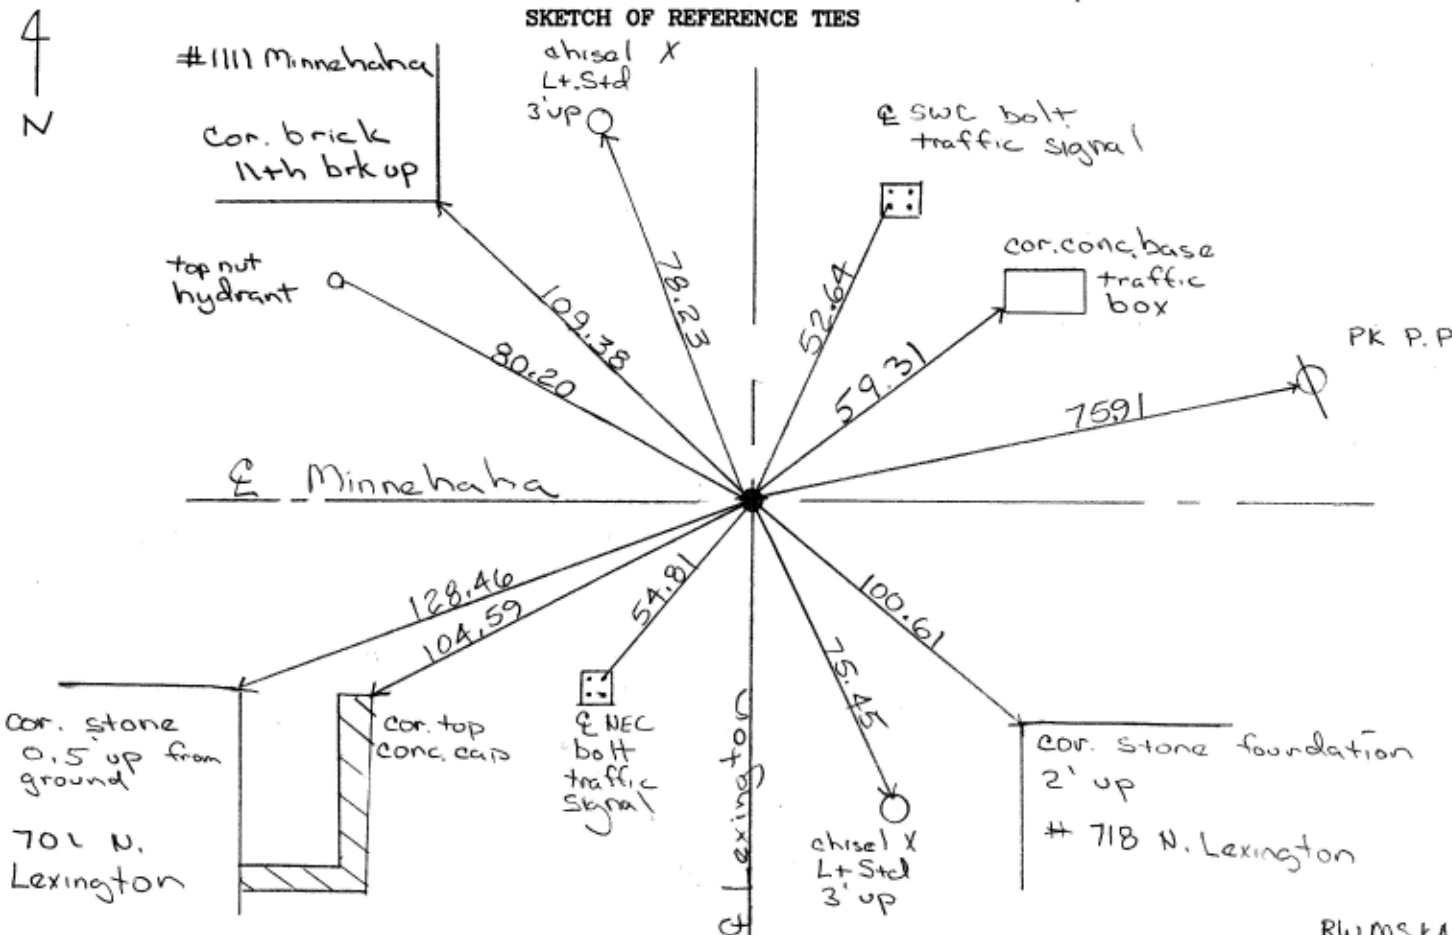 SKETCH OF REFERENCE TIES
N
#1111 Minnehaha
cor. brick
11th brk up
chisel X
Lt. Std
3' up
℄ SWC bolt
traffic signal
top nut
hydrant
cor. conc. base
traffic
box
PK P.P
109.38
78.23
52.64
80.20
59.31
75.91
℄ Minnehaha
128.46
104.59
54.81
75.45
100.61
cor. stone
0.5' up from
ground
701 N.
Lexington
cor. top
conc. cap
℄ NEC
bolt
traffic
signal
℄ Lexington
chisel X
Lt Std
3' up
cor. stone foundation
2' up
# 718 N. Lexington